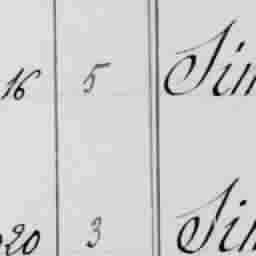 16 5 Sim
20 3 Sim